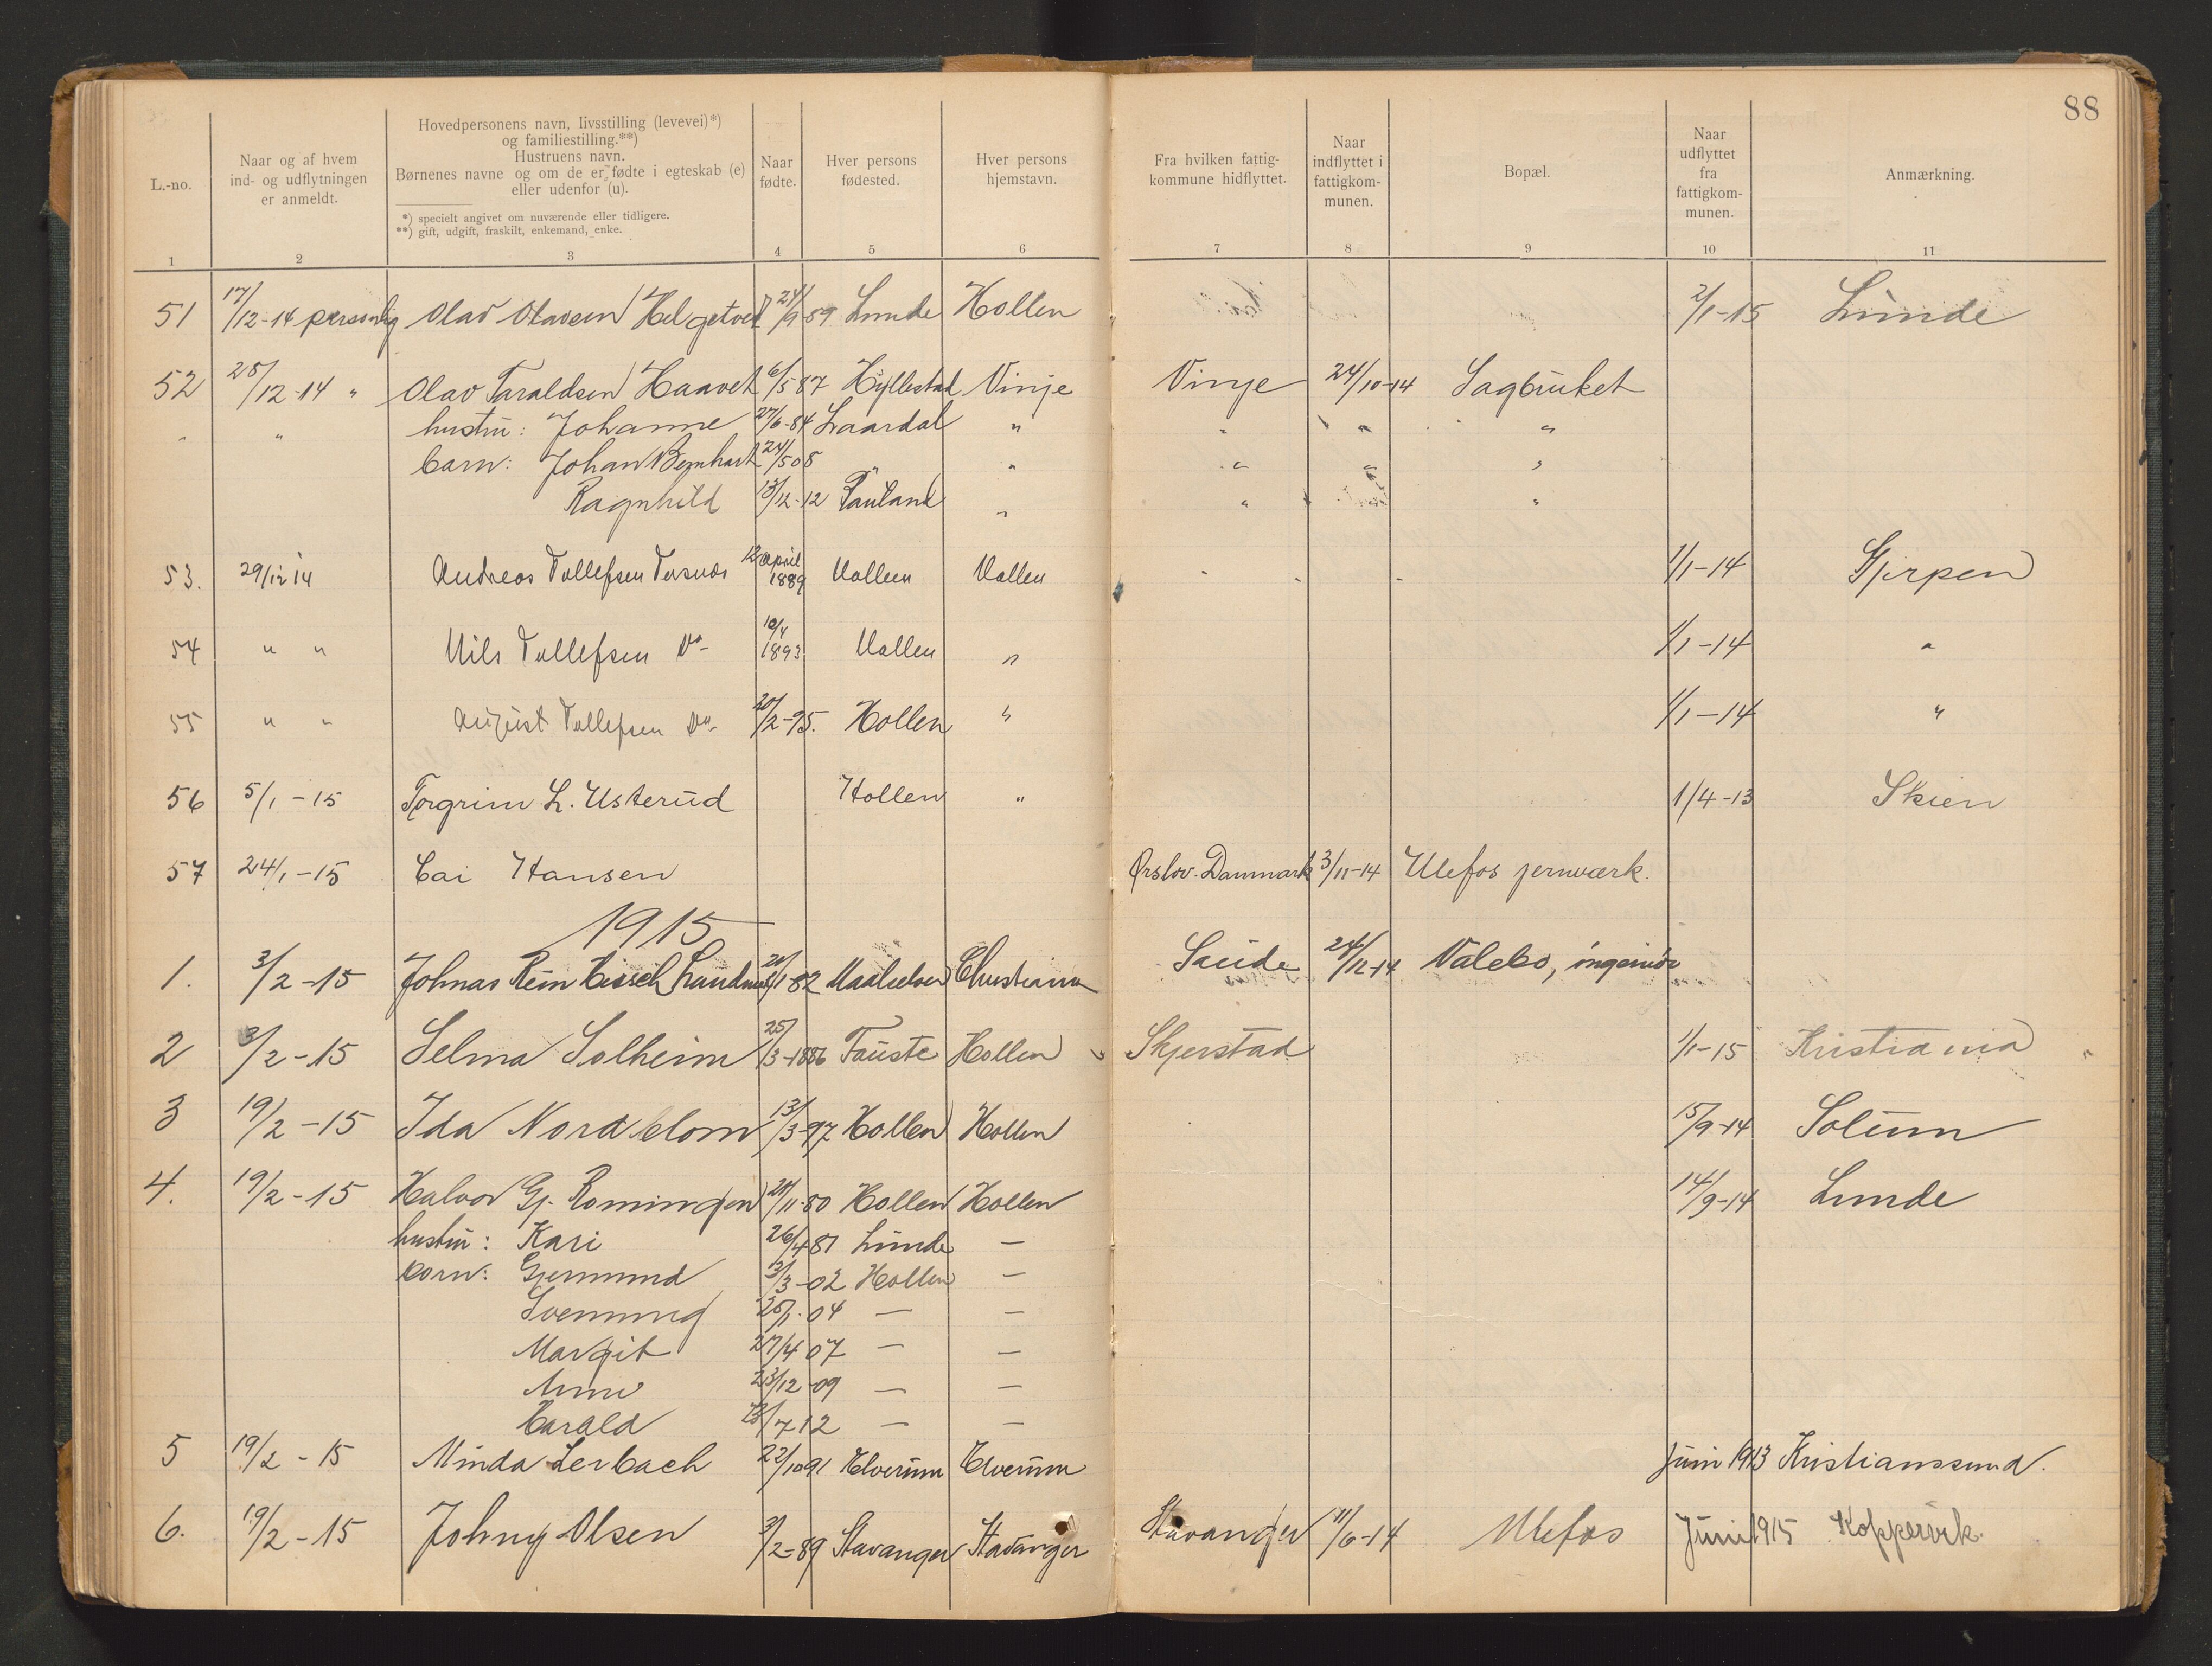 88
L.-no.
Naar og af hvem
ind- og udflytningen
er anmeldt.
Hovedpersonens navn, livsstilling (levevei)*)
og familiestilling.**)
Hustruens navn.
Børnenes navne og om de er fødte i egteskab (e)
eller udenfor (u).
*) specielt angivet om nuværende eller tidligere.
**) gift, udgift, fraskilt, enkemand, enke.
Naar
fødte.
Hver persons
fødested.
Hver persons
hjemstavn.
Fra hvilken fattig-
kommune hidflyttet.
Naar
indflyttet i
fattigkom-
munen.
Bopæl.
Naar
udflyttet
fra
fattigkom-
munen.
Anmærkning.
1 2 3 4 5 6 7 8 9 10 11
51 17/12-14 personlig Olav Olavsen Helgetveit 24/9 59 Lunde Hollen 2/1-15 Lunde
52 28/12-14 " Olav Taraldsen Haavet 6/5 87 Hyllestad Vinje Vinje 24/10-14 Sagbruket
" " hustru: Johanne 27/6-84 Laardal " " " "
barn: Johan Bernhart 24/5 08 " " " " "
Ragnhild 13/12-12 Rauland " " "
53. 29/12 14 Andreas Tollefsen 12 april 1889 Hollen Hollen - - - 1/1-14 Gjerpen
54 " " Nils Tollefsen Do- 10/4 1893 Hollen " 1/1-14 "
55 " " August Tollefsen Do- 20/2-95. Hollen " 1/1-14 "
56 5/1-15 Torgrim L. Usterud Hollen " 1/4-13 Skien
57 24/1-15 Cai Hansen Ørslov. Danmark 3/11-14 Ulefos jernværk.
1915
1. 3/2-15 Johnas Rein 1-82 Christiania Saude 24/12-14 Valebo, ingeniør
2 3/2-15 Selma Solheim 25/3-1886 Fauste Hollen Skjerstad 1/1-15 Kristiania
3 19/2-15 Ida Nordblom 13/3-97 Hollen Hollen 15/9-14 Solum
4. 19/2-15 Halvor Gj. Romingen 21/11-80 Hollen Hollen 14/9-14 Lunde
hustru: Kari 26/4 81 Lunde —
born: Gjermund 13/3-02 Hollen —
Svenning 25/1-04 — —
Margit 27/4 07 — —
Anne 23/12-09 — —
Harald 7 12 — —
5 19/2-15 Minda Lerbach 22/10 91 Elverum Elverum Juni 1913 Kristianssund.
6. 19/2-15 Johny Olsen 3/2-89 Stavanger Stavanger Stavanger 11/6-14 Ulefos Juni 1915 Koppervik.